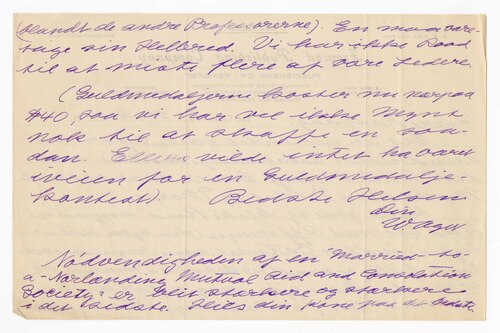 (blandt de andre Professorerne). En maa vare-
tage sin Helbred. Vi har ikke Raad
til at miste flere af vore Ledere.
(Guldmedaljerne koster nu karpaa
$40, saa vi har vel ikke Mynt
nok til at skaffe en saa-
dan. Ellers vilde intet ha været
iveien for en Guldmedalje-
kontest). Bedste Hilsen
Din
Wager
Nødvendigheden af en "Married-to-
a-Norlænding Mutual Aid and Consolation
Society" er blit stærkere og stærkere
i det sidste. Hils din kone paa det bedste.